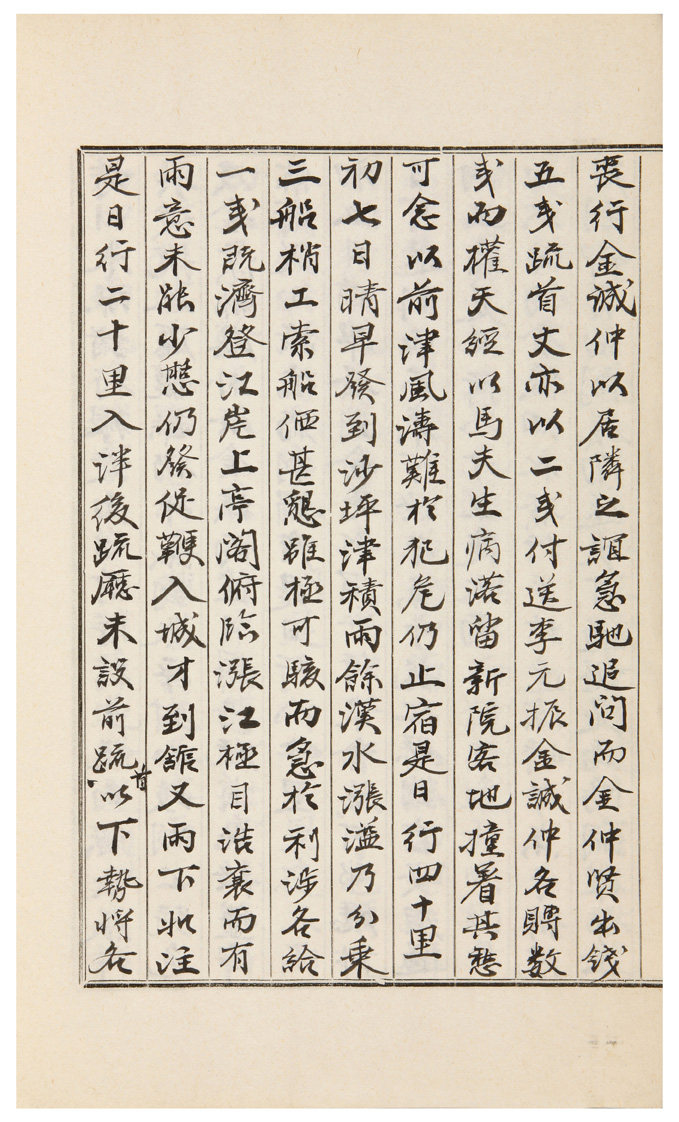 喪行金誠仲以居隣之誼急馳追问而金仲賢出錢
五戔疏首丈亦以二戔付送李元振金誠仲各賻数
戔而權天經以馬夫生病落留新院客地撞着其愁
可念以前津風濤難於犯危仍止宿是日行四十里
初七日晴早發到沙坪津積雨餘漢水漲溢乃分乗
三船梢工索船価甚懇雖極可駭而急於利涉各給
一戔既濟登江岸上亭阁俯临漲江極目浩褱而有
雨意未能少憇仍發促鞭入城才到館又雨下如注
是日行二十里入泮後疏廳未設前疏首以下勢将各